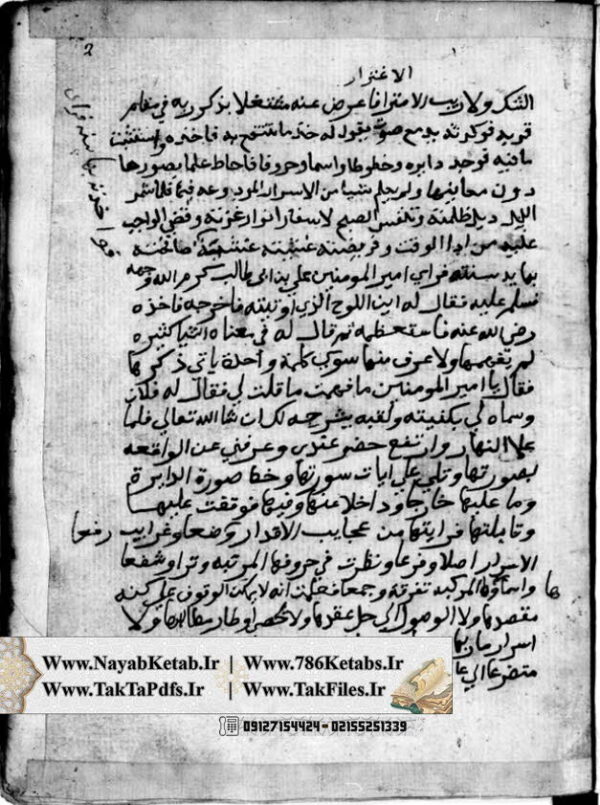 2
الاغترار
الشك ولا ريب الامترا فاعرض عنه مشتغلا بذكر ربه في مقامه
قريد فوكزته يد مع صوت يقول له خذ ما تنتفع به فاخذه
ما فيه فوجد دايره وخطوطا واسما وحروفا فاحاط علما بصورها
دون معانيها ولم يعلم شييا من الاسرار المودوعه فيها فلما شمر
الليل ذيل ظلمته وتنفس الصبح لاسفار انوار غرته وقضي الواجب
عليه من ادا الوقت وفريضته
بها يد سنته فراي امير المومنين علي بن ابي طالب كرم الله وجهه
فسلم عليه فقال له اين اللوح الذي اوتيته فاخرجه فاخذه
رضي الله عنه فاستعظمه ثم قال له في معناه اشيا كثيره
لم يفهمها ولا عرف منها سوي كلمة واحدة ياتي ذكرها
فقال يا امير المومنين ما فهمت ما قلت لي فقال له فلان
وسماه لي بكنيته ولقبه يشرحه لك ان شا الله تعالي فلما
علا النهار وارتفع حضر عندي وعرفني عن الواقعه
بصورتها وتلي علي ايات سورتها وخط صورة الدايرة
وما عليها خارجا وداخلا منها وفيها فوقفت عليها
وقابلتها فرايتها من عجايب الاقدار وضعا وغرايب رفعا
الاسرار اصلا وفرعا ونظرت في حروفها المرتبه وترا وشفعا
واسماوها المركبه تفرقة وجمعا فعلمت انه لا يمكن الوقوف علي كنه
ها
مقصدها ولا الوصول الي حل عقدها ولا تحصر اوطار مطالبها ولا
اسرار
متضرعا الي
www.NayabKetab.Ir | www.786Ketabs.Ir
www.TakTaPdfs.Ir | www.TakFiles.Ir
09127154424 - 02155251339